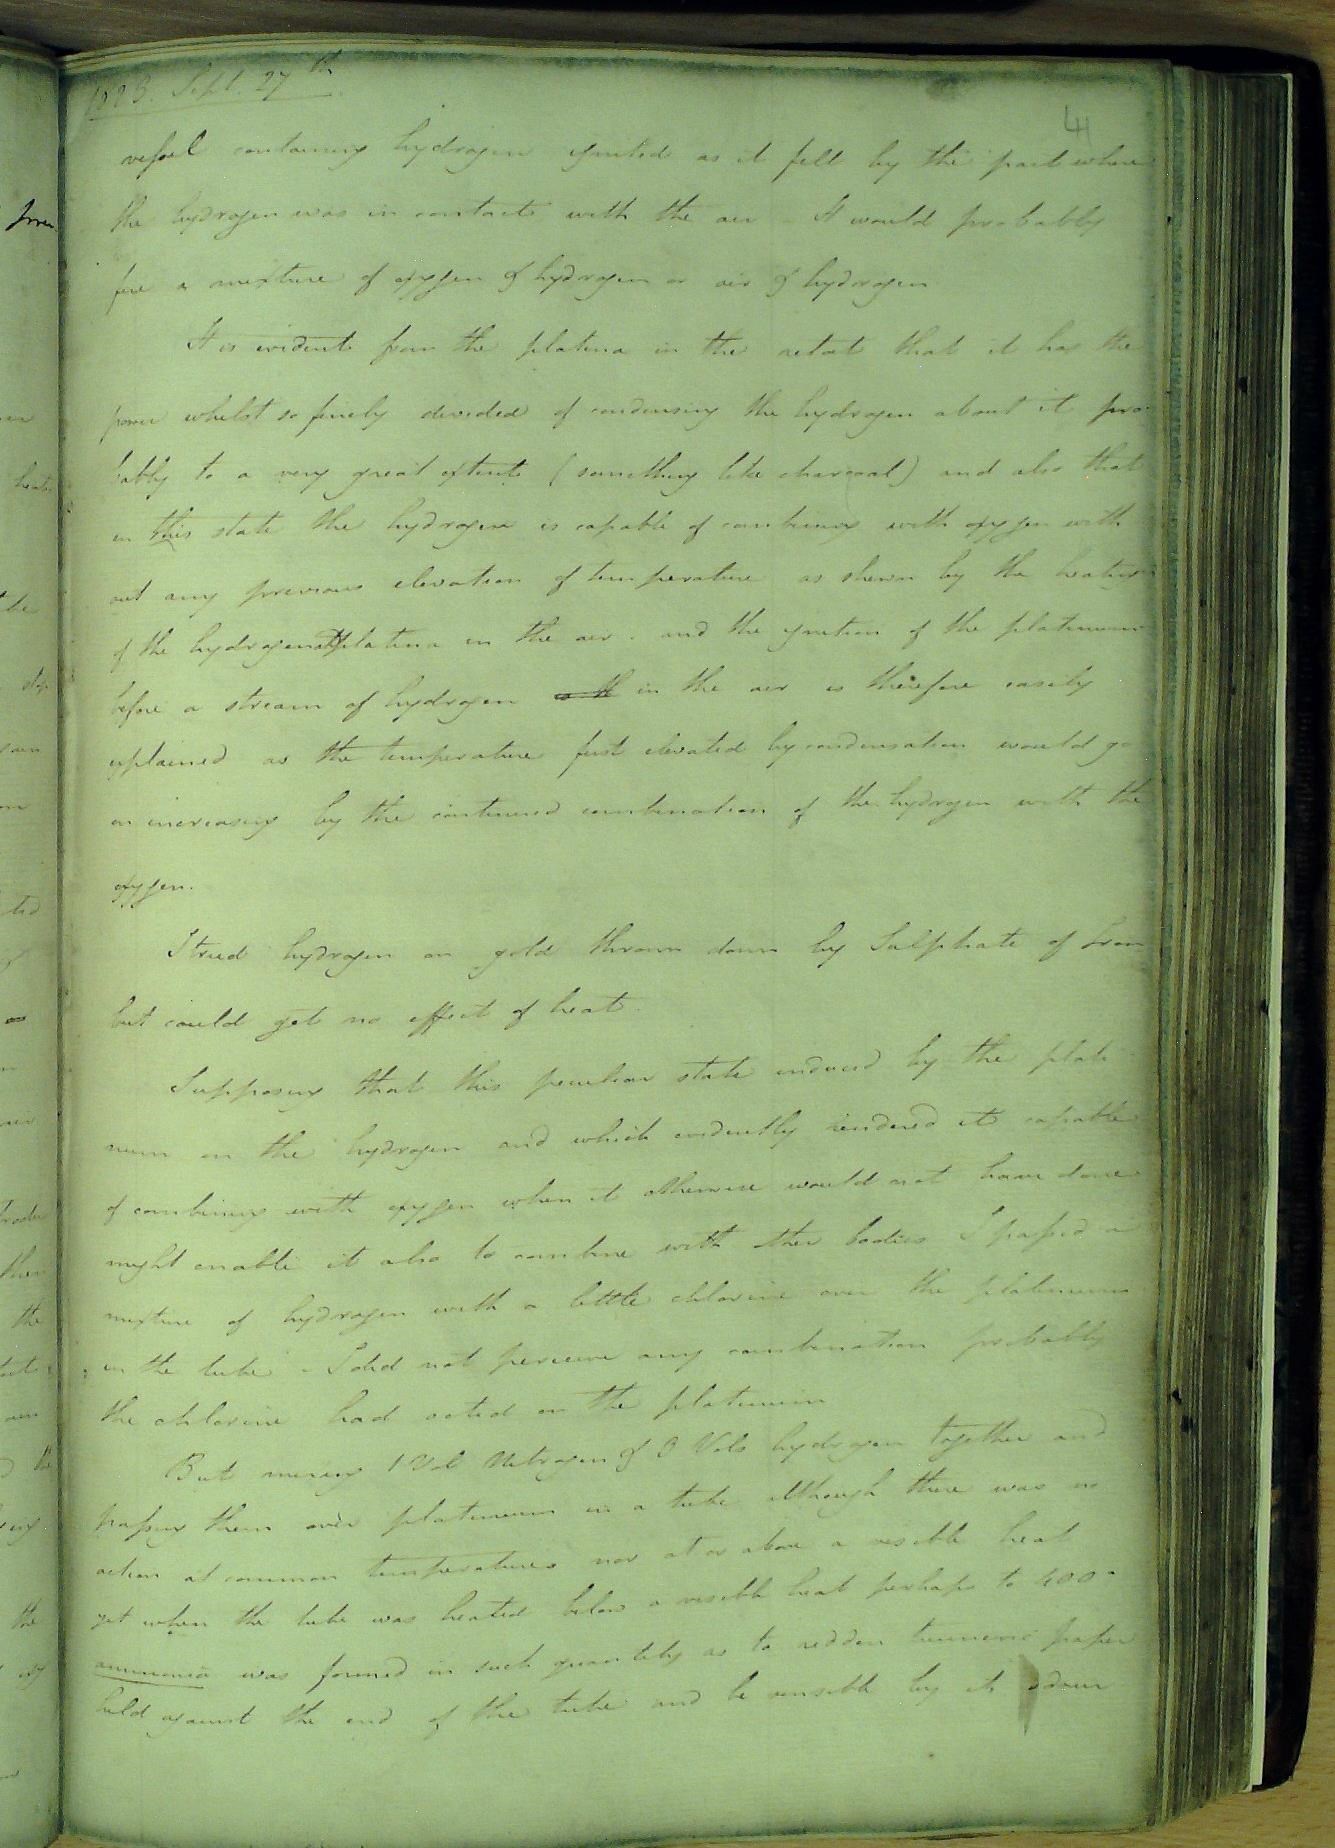 1823. Sept. 27th
41
vessel containing hydrogen ignited as it fell by the part where
the hydrogen was in contact with the air - It would probably
fire a mixture of oxygen & hydrogen or air & hydrogen
It is evident from the platina in the retort that it has the
power whilst so finely divided of condensing the hydrogen about it pro
bably to a very great extent (something like charcoal) and also that
in this state the hydrogen is capable of combining with oxygen with
out any previous elevation of temperature as shewn by the heating
of the hydrogenated platina in the air. and the ignition of the platinum
before a stream of hydrogen in the air is therefore easily
explained as the temperature first elevated by condensation would go
on increasing by the continued combination of the hydrogen with the
oxygen.
I tried hydrogen on gold thrown down by Sulphate of Iron
but could get no effect of heat.
Supposing that this peculiar state induced by the plati
num on the hydrogen and which evidently rendered it capable
of combining with oxygen when it otherwise would not have done
might enable it also to combine with other bodies I passed a
mixture of hydrogen with a little chlorine over the platinum
in the tube - I did not perceive any combination probably
the chlorine had acted on the platinum
But mixing 1 Vol Nitrogen & 3 Vols hydrogen together and
passing them over platinum in a tube although there was no
action at common temperatures nor at or above a visible heat
yet when the tube was heated below a visible heat perhaps to 400°
ammonia was formed in such quantity as to redden turmeric paper
held against the end of the tube and be sensible by its odour